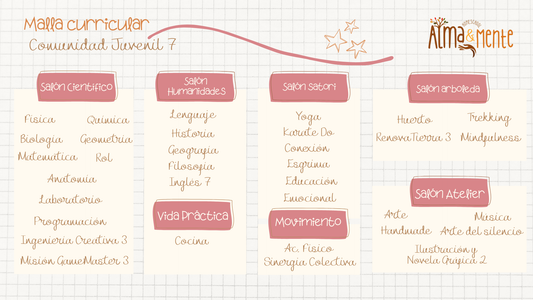 Malla curricular
Comunidad Juvenil 7
Alma & Mente
Salón Científico
Física Química
Biología Geometría
Matemática Rol
Anatomía
Laboratorio
Programación
Ingeniería Creativa 3
Misión GameMaster 3
Salón
Humanidades
Lenguaje
Historia
Geografía
Filosofía
Inglés 7
Vida Práctica
Cocina
Salón Satori
Yoga
Karate Do
Conexión
Esgrima
Educación
Emocional
Movimiento
Ac. Físico
Sinergia Colectiva
Salón arboleda
Huerto Trekking
RenovaTierra 3 Mindfulness
Salón Atelier
Arte Música
Handmade Arte del silencio
Ilustración y
Novela Gráfica 2